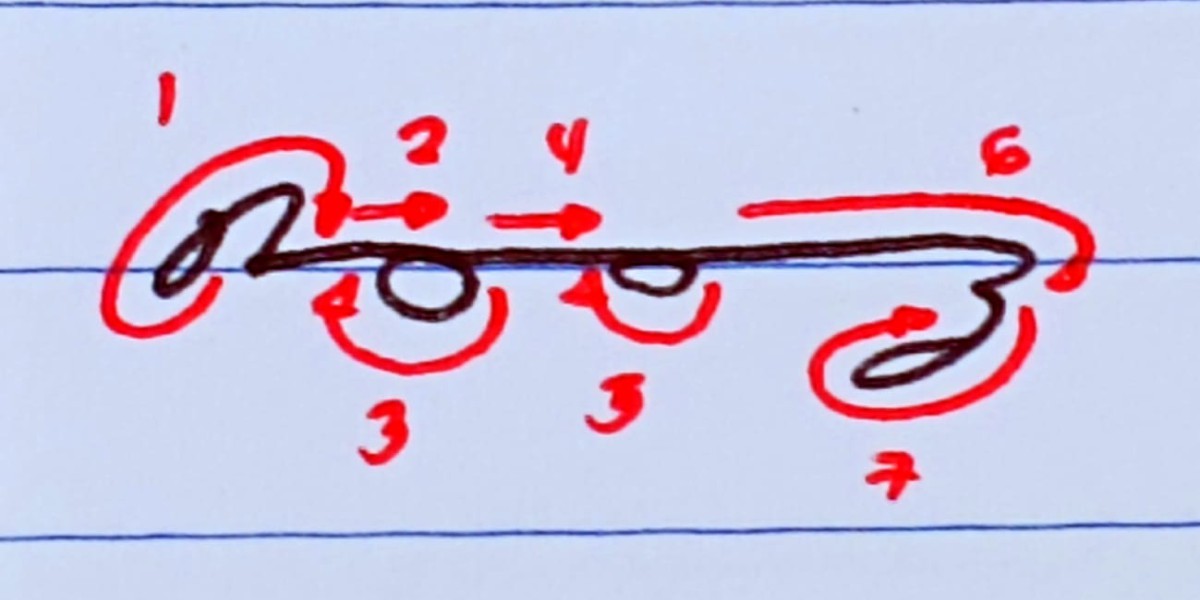 1 2 4 6
3 5 7